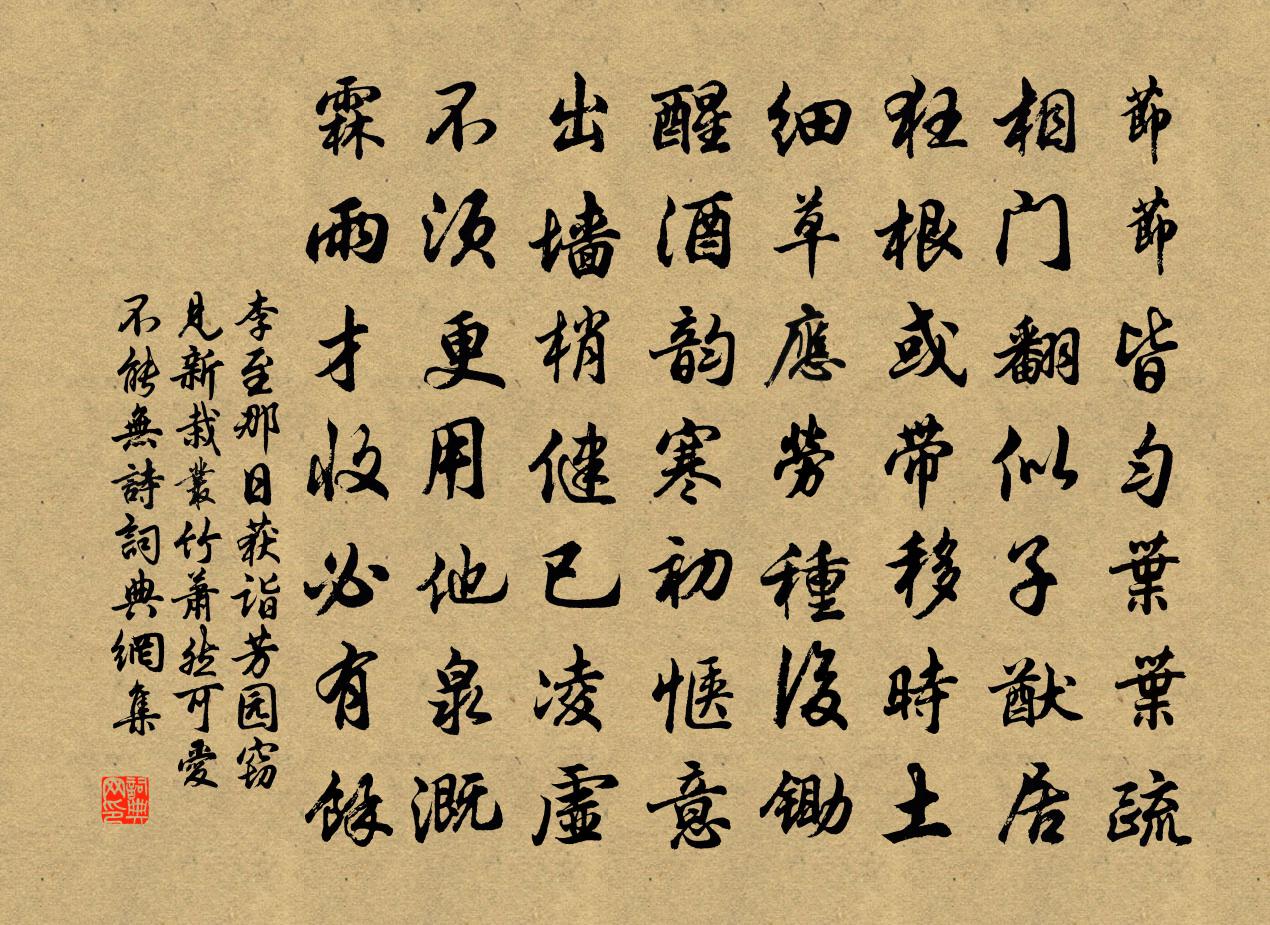 節節皆勻葉葉疏
相门翻似子猷居
狂根或带移時土
细草應勞種後鋤
醒酒韵寒初惬意
出墙梢健已凌虛
不须更用他泉溉
霖雨才收必有餘
李至那日获诣芳园窃
見新栽叢竹蕭然可愛
不能無詩詞典網集
詞典网印